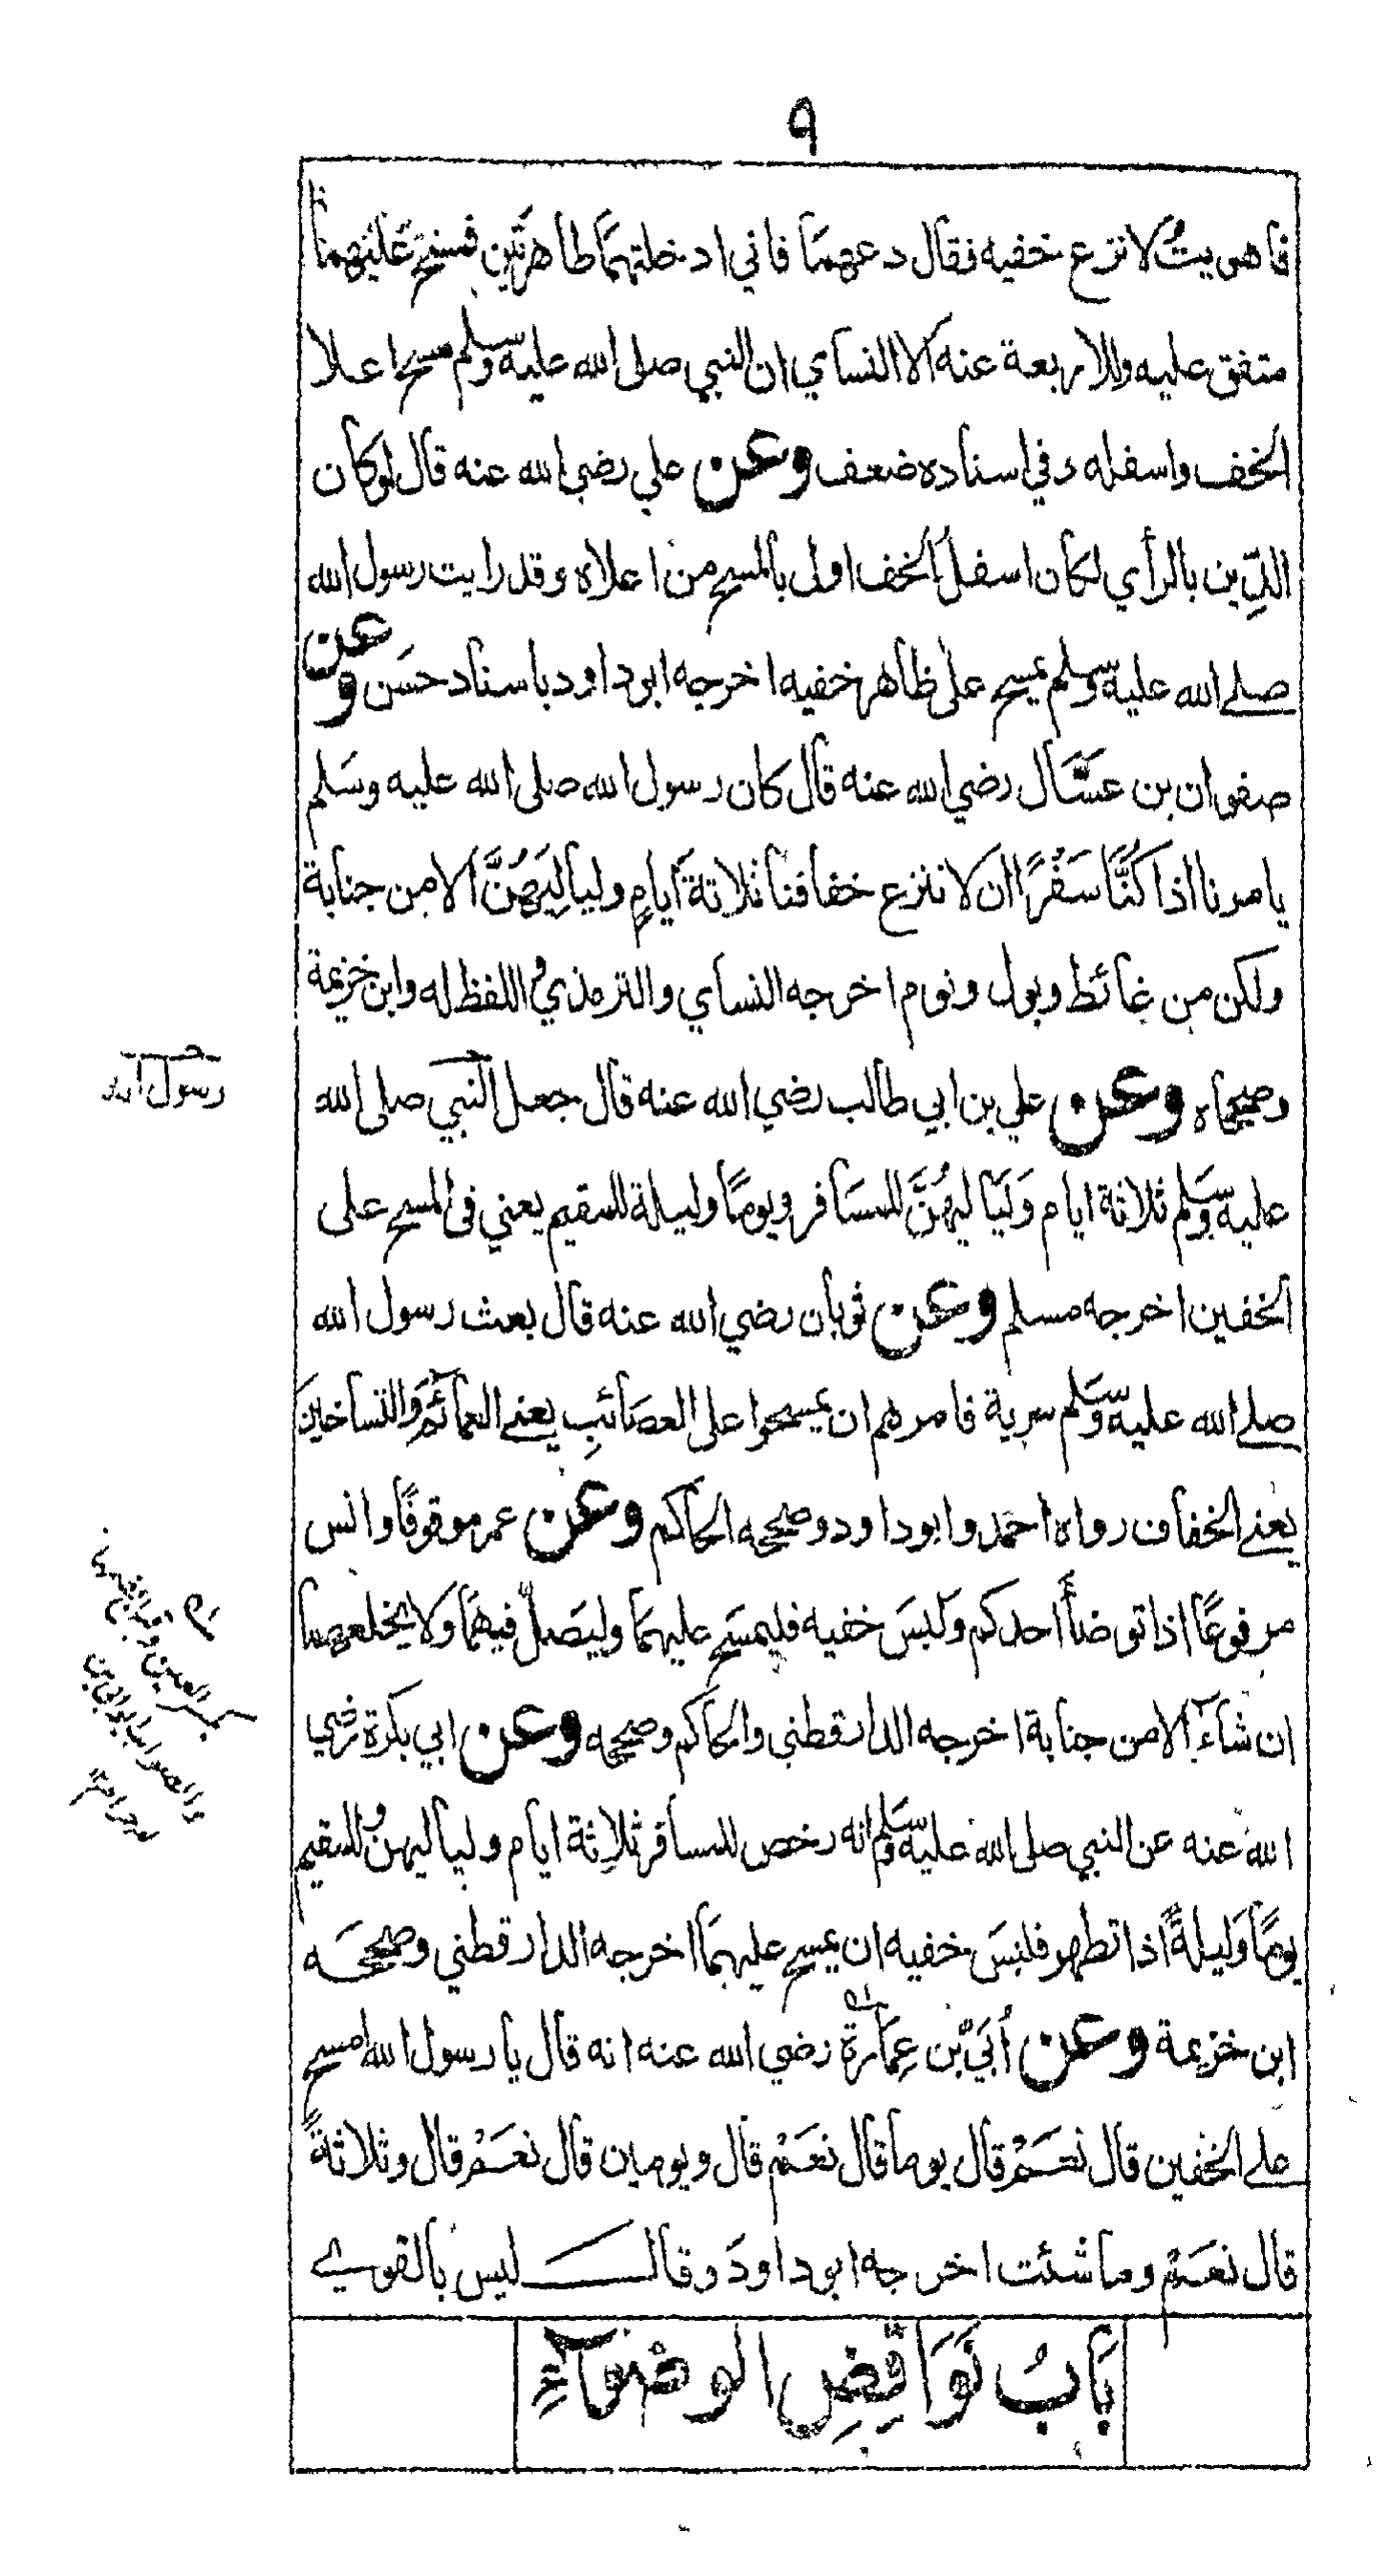 ٩
فاهويتُ لانزع خفيه فقال دعهما فاني ادخلتهما طاهرتين فمسح عليهما
متفق عليه وللاربعة عنه الا النساي ان النبي صلى الله عليه وسلم مسح اعلا
الخف واسفله وفي اسناده ضعف وعن علي رضي الله عنه قال لو كان
الدِّين بالرأي لكان اسفل الخف اولى بالمسح من اعلاه وقد رايت رسول الله
صلى الله عليه وسلم يمسح على ظاهر خفيه اخرجه ابو داود باسناد حسَن وعن
صفوان بن عسَّال رضي الله عنه قال كان رسول الله صلى الله عليه وسَلم
يامرنا اذا كنَّا سَفْرًا ان لا ننزع خفافنا ثلاثة ايامٍ ولياليَهُنَّ الا من جنابة
ولكن من غائط وبول ونوم اخرجه النساي والترمذي واللفظ له وابن خزيمة
وصححاه وعن علي بن ابي طالب رضي الله عنه قال جعل النبي صلى الله
رسول الله
عليه وسَلم ثلاثة ايام وَلَياليهُنَّ للمسَافر ويومًا وليلة للمقيم يعني في المسح على
الخفين اخرجه مسلم وعن ثوبان رضي الله عنه قال بعث رسول الله
صلى الله عليه وسَلم سرية فامرهم ان يمسحوا على العصَائبِ يعني العمائم والتساخين
يعني الخفاف رواه احمَد وابو داود وصححه الحاكم وعن عمر موقوفًا وانس
مرفوعًا اذا توضأ احدكم وَلبسَ خفيه فليمسَح عليهمَا وليصَلّ فيهمَا ولا يخلعهما
ان شاءَ الا من جنابة اخرجه الدارقطني والحاكم وصححه وعن ابي بكرة رضي
الله عنه عن النبي صلى الله عليه وسَلم انه رخص للمسافر ثلاثة ايام ولياليهن وللمقيم
يومًا وَليلةً اذا تطهر فلبسَ خفيه ان يمسح عليهمَا اخرجه الدارقطني وصححَه
ابن خزيمة وعن أُبَيّ بن عِمَارة رضي الله عنه انه قال يا رسول الله امسح
على الخفين قال نعَمْ قال يوما قال نعَمْ قال ويومين قال نعَمْ قال وثلاثةً
قال نعَمْ وما شئت اخرجه ابو داودَ وقال ليس بالقوي
بَابُ نَوَاقِضِ الوضوآءِ